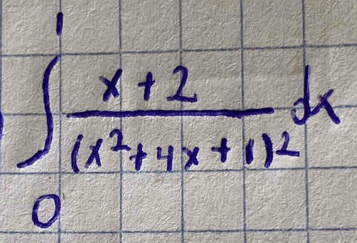 ∫₀¹ (x + 2)/(x² + 4x + 1)² dx